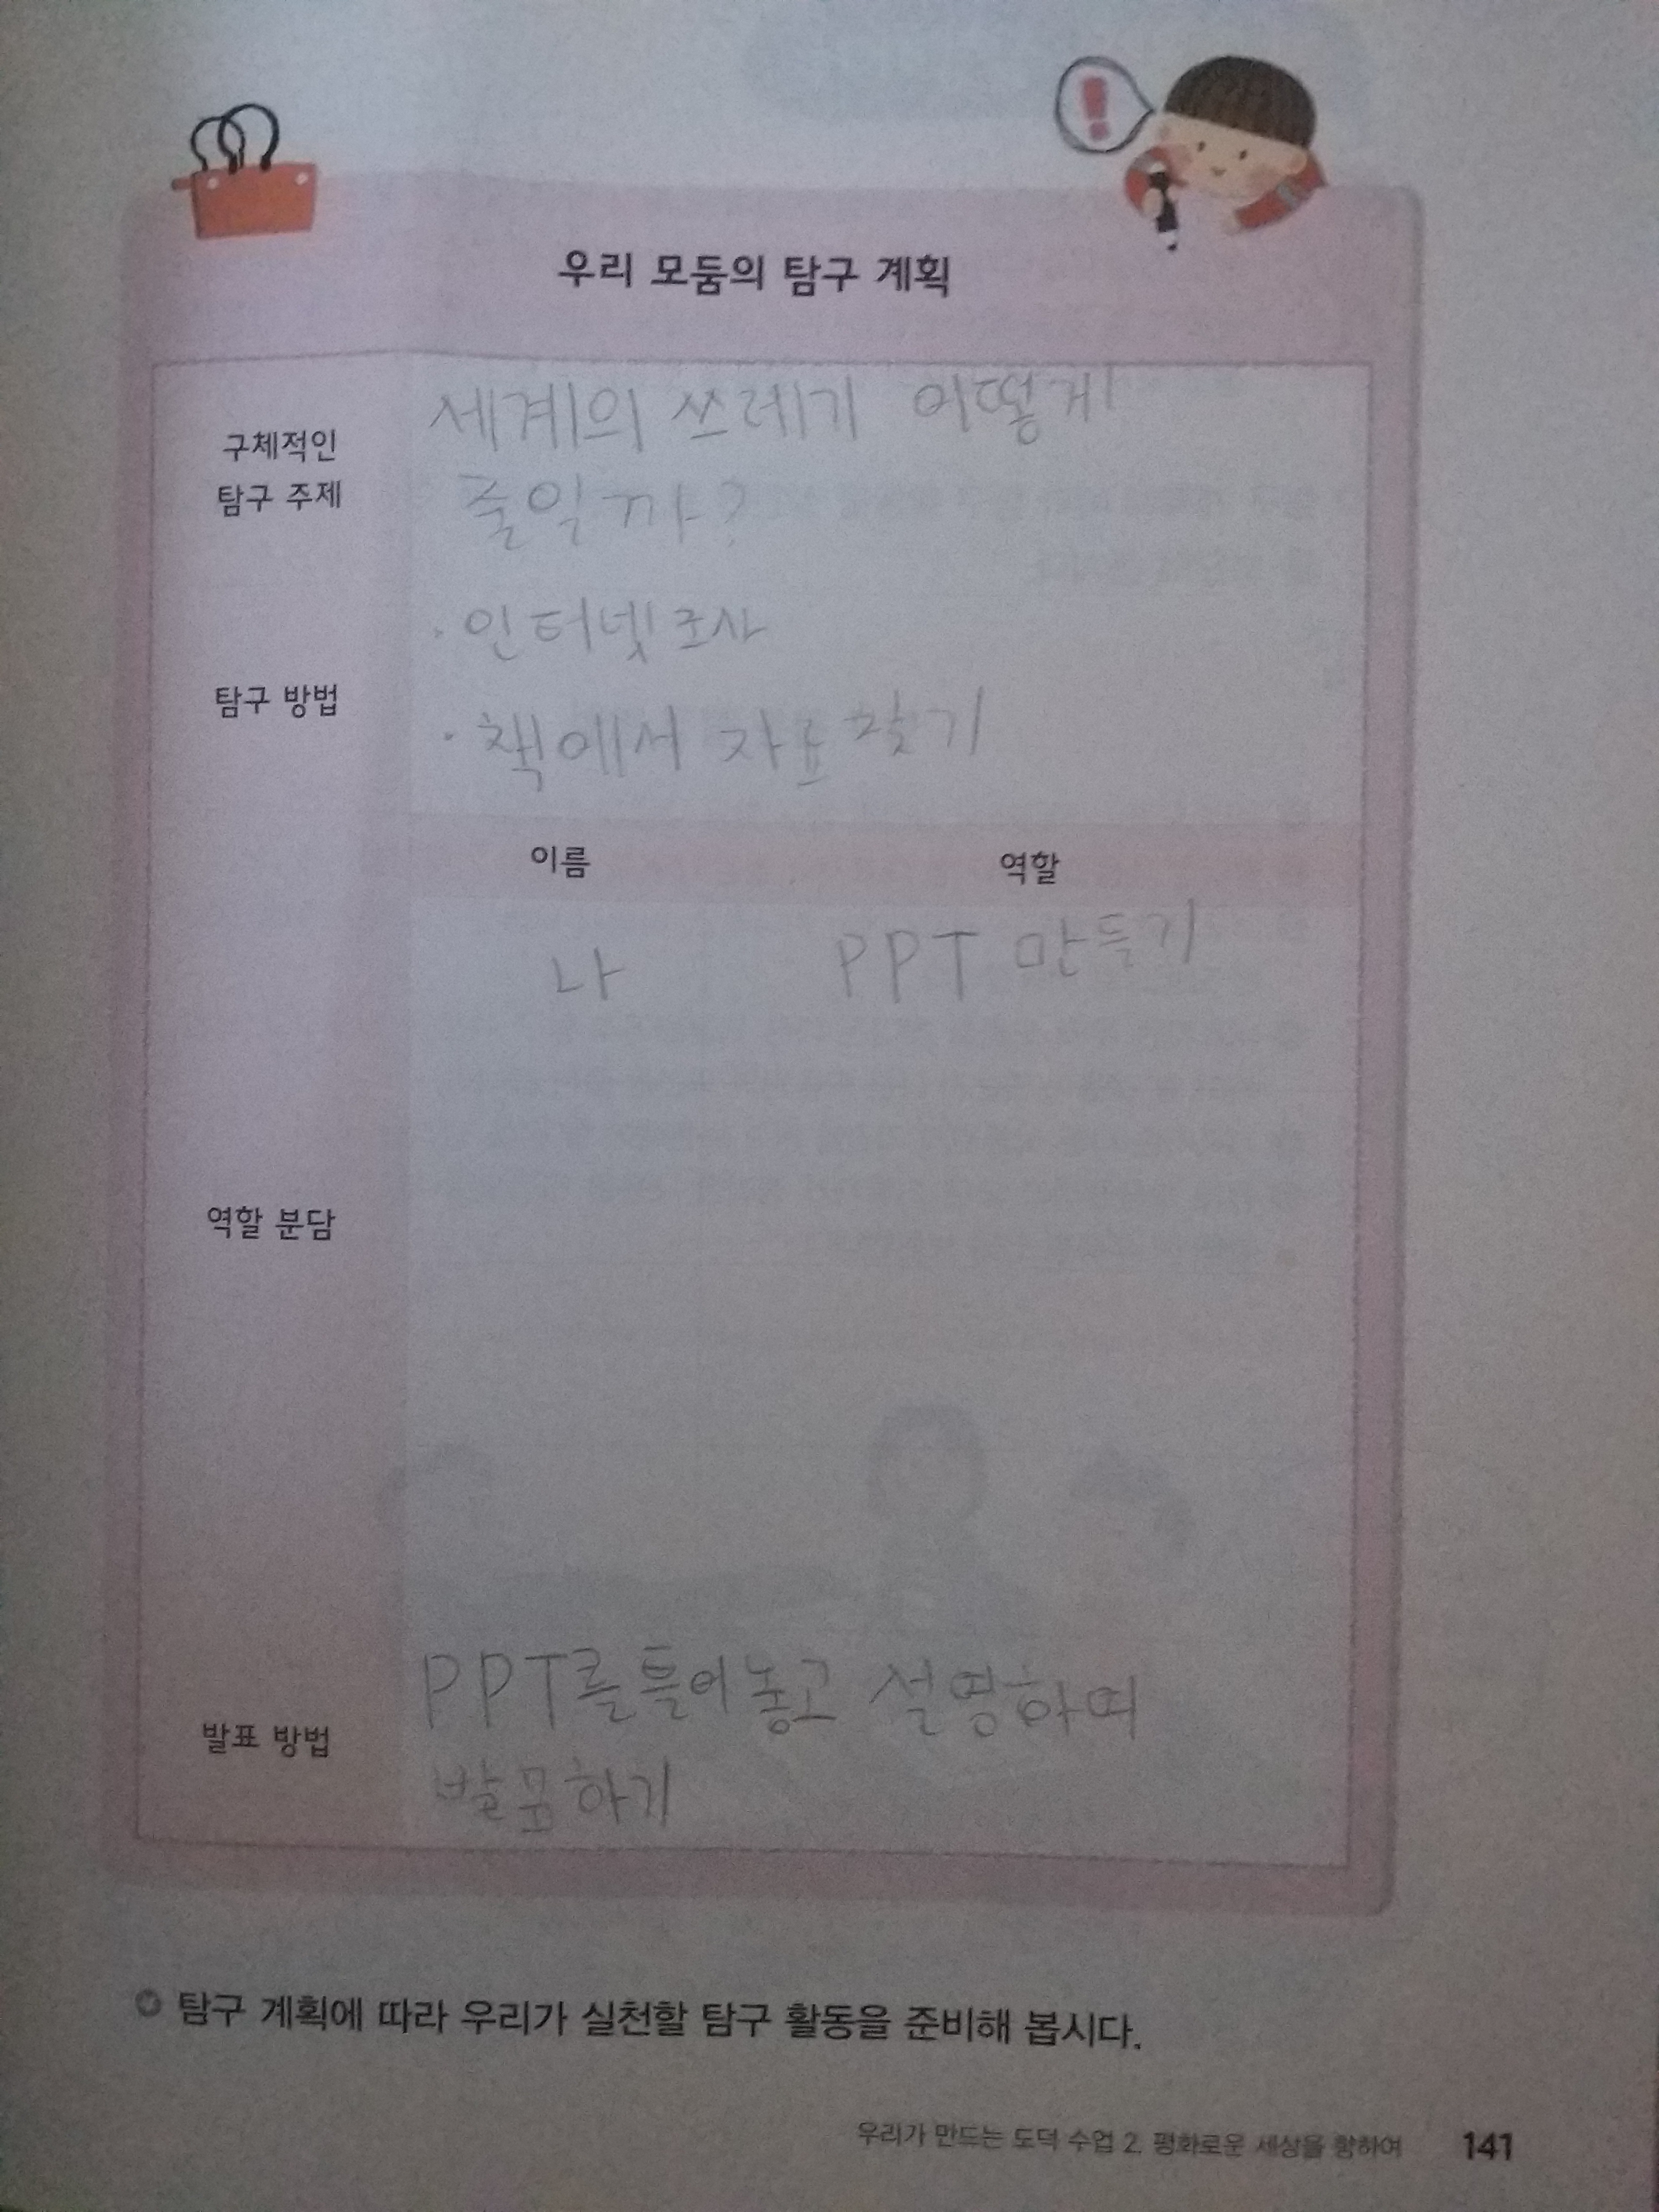 !
우리 모둠의 탐구 계획
구체적인
탐구 주제
세계의 쓰레기 어떻게
줄일까?
탐구 방법
· 인터넷 조사
· 책에서 자료 찾기
이름 역할
나 PPT 만들기
역할 분담
발표 방법
PPT를 틀어놓고 설명하며
하기
탐구 계획에 따라 우리가 실천할 탐구 활동을 준비해 봅시다.
우리가 만드는 도덕 수업 2. 평화로운 세상을 향하여 141